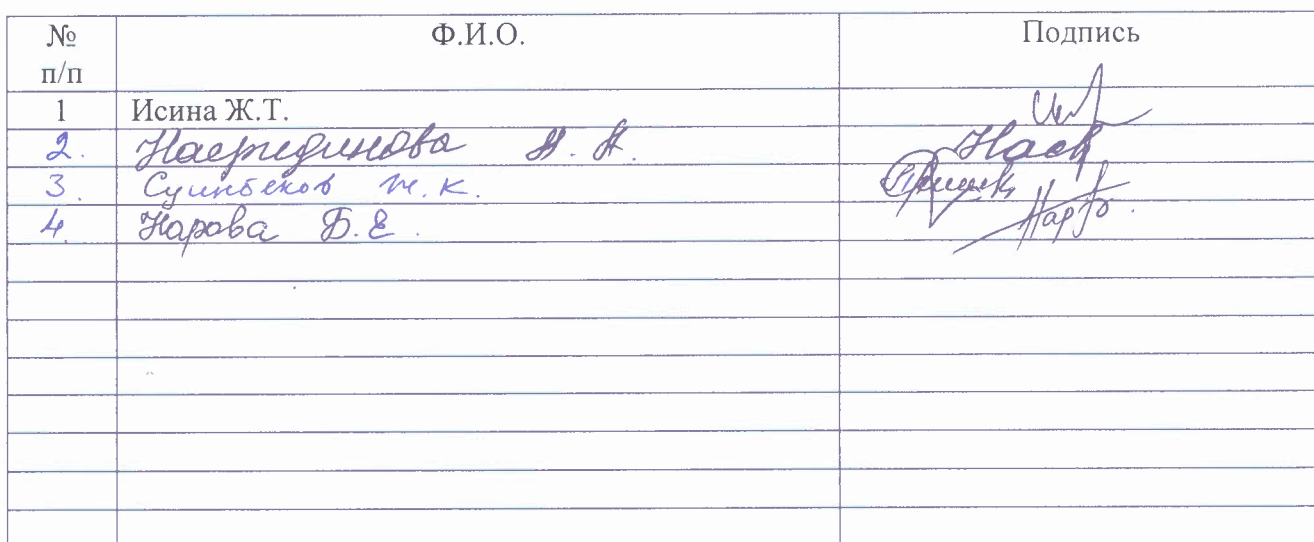 № п/п Ф.И.О. Подпись
1 Исина Ж.Т.
2. Насрединова Н. Н.
3. Суинбеков Ж. К.
4. Нарова Б.Е.